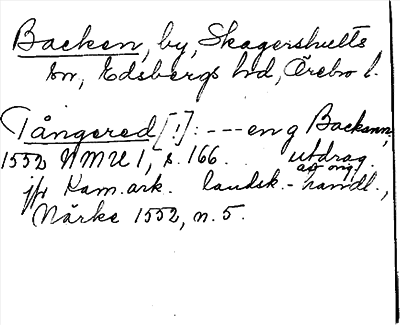 Backen, by, Skagershults
sn, Edsbergs hd, Örebro l.
Tångered [!]: --- en g Backenn,
1552 NMU 1, s. 166. utdrag
av orig.
jfr Kam.ark. landsk.-handl.,
Närke 1552, n. 5.